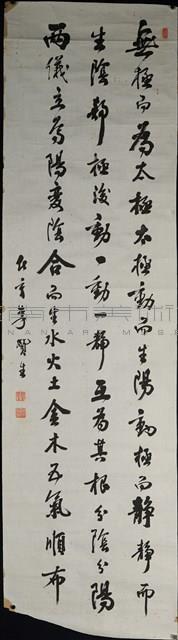 無極而為太極太極動而生陽動極而靜靜而
生陰靜極復動一動一靜互為其根分陰分陽
兩儀立焉陽變陰合而生水火土金木五氣順布